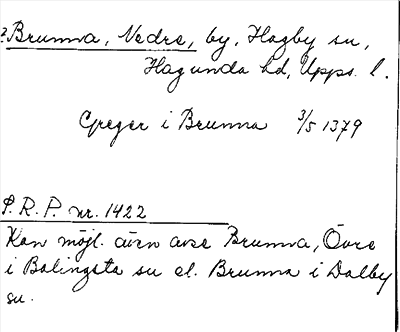 ? Brunna, Nedre, by, Hagby sn,
Hagunda hd, Upps. l.
Greger i Brunna 3/5 1379
P. R. P. nr. 1422
Kan möjl. även avse Brunna, Övre
i Balingsta sn el. Brunna i Dalby
sn.